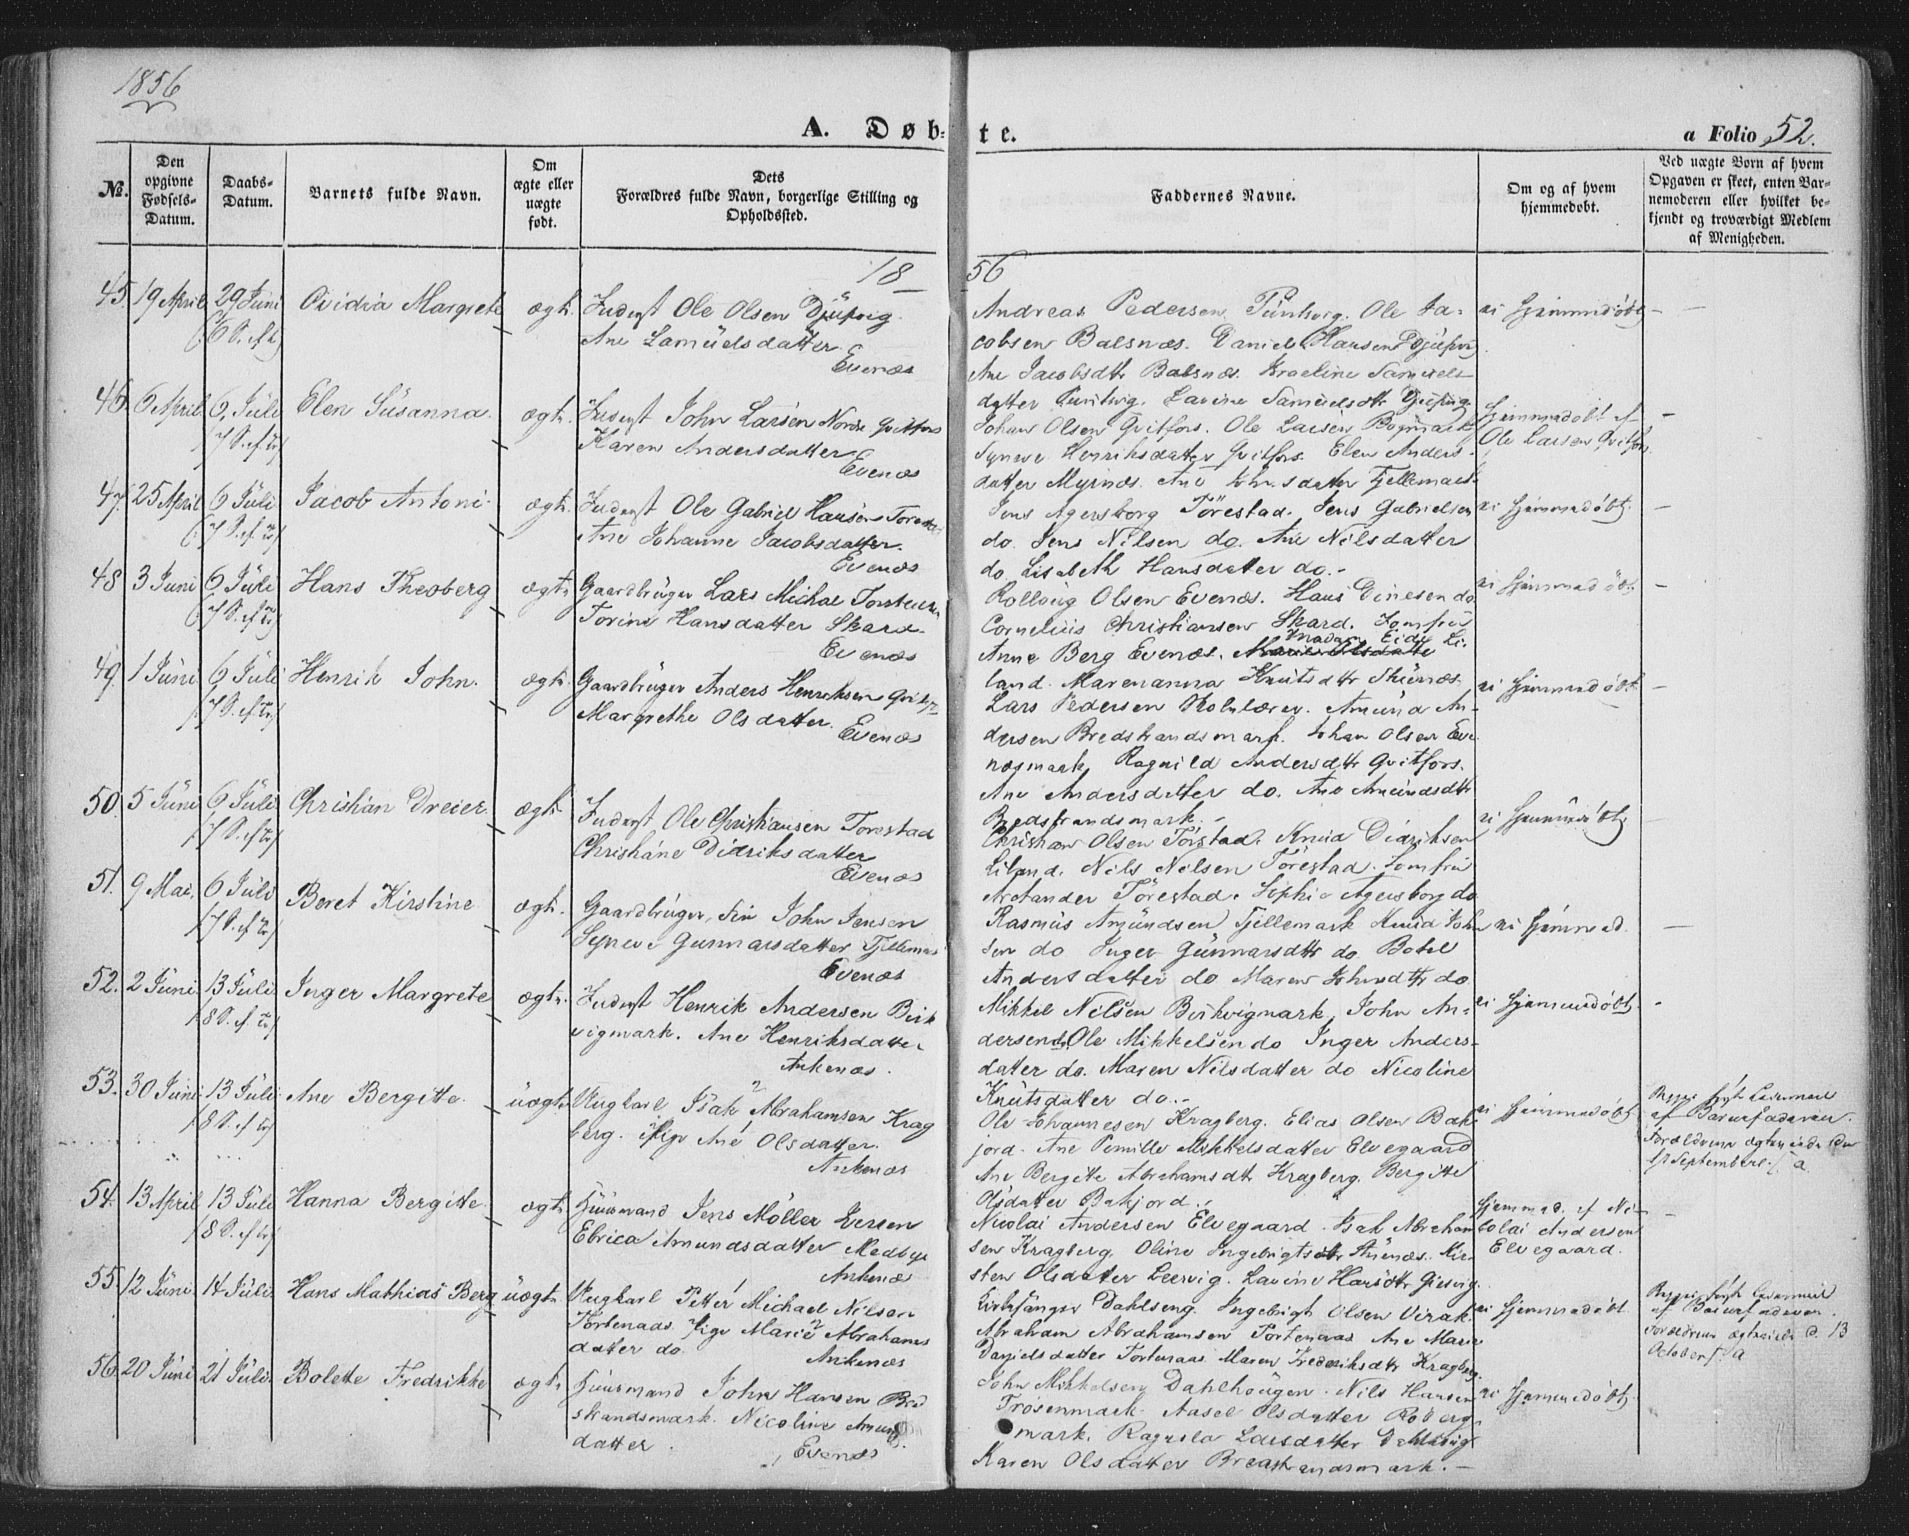 1856
A. Døbte.
a Folio 52.
No.
Den opgivne Fødsels-Datum.
Daabs-Datum.
Barnets fulde Navn.
Om ægte eller uægte født.
Dets Forældres fulde Navn, borgerlige Stilling og Opholdssted.
Faddernes Navne.
Om og af hvem hjemmedøbt.
Ved uægte Børn af hvem Opgaven er skeet, enten Barnemoderen eller hvilket bekjendt og troværdigt Medlem af Menigheden.
1856
45. 19 April 29 Juni Ovidia Margrete ægt. Inderst Ole Olsen Djüpvig
6 S. ef Tr
Ane Samüelsdatter
Evenæs
Andreas Pedersen Ole Ja-
cobsen Balsnæs. Daniel Hansen Djüpvig
Ane Jacobsdtr Balsnæs. Samuels-
datter Lavine Samüelsdtr Djüpvig
ei hjemmedøbt
46. 6 April 6 Juli Elen Süsanna ægt. Inderst John Larsen Nordre Qvitfors
7 S. ef Tr
Karen Andersdatter
Evenæs
Johan Olsen Qvitfors. Ole Larsen
Synøve Henriksdatter Qvitfors. Elen Anders-
datter Myrnæs. Ane Johnsdatter Fjellemark
Hjemmedøbt af
Ole Larsen Qvitfors
47. 25 April 6 Juli Jacob Antoni ægt. Inderst Ole Gabriel Hansen Torestad
7 S. ef Tr
Ane Johanne Jacobsdatter
Evenæs
Jens Agersborg Törestad. Jens Gabrielsen
do. Jens Nilsen do. Ane Nilsdatter
do. Lisabeth Hansdatter do.
ei hjemmedøbt
48 3 Juni 6 Juli Hans Theoberg ægt. Gaardbrüger Lars Michal Torstensen
7 S. ef Tr
Torine Hansdatter Skard
Evenæs
Olsen Evenæs. Hans Dinesen do
Cornelius Christiansen Skard. Jomfrü
Anne Berg Evenæs. Madam Eide Li-
land. Marenanna Knütsdtr
ei hjemmedøbt
49. 1 Juni 6 Juli Henrik John ægt. Gaardbrüger Anders Henriksen
7 S. ef Tr
Margrethe Olsdatter
Evenæs
Lars Pedersen. Amünd An-
dersen Bredstrandsmark. Johan Olsen Eve-
næsmark. Ragnild Andersdtr Qvitfors.
Ane Andersdatter do. Ane Amündsdtr
Bredstrandsmark.
ei hjemmedøbt
50. 5 Juni 6 Juli Christian Dreier ægt. Inderst Ole Christiansen Torestad
7 S. ef Tr
Christiane Didriksdatter
Evenæs
Christian Olsen Törestad. Knud Didriksen
Liland. Nils Nilsen Törestad. Jomfrü
Arctander Törestad. Sophie Agersborg do
ei hjemmedøbt
51. 9 Mai. 6 Juli Beret Kirstine ægt. Gaardbrüger, Fin John Jensen
7 S. ef Tr
Synøve Gunnarsdatter Fjellemark
Evenæs
Rasmüs Amündsen Fjellemark Knud John-
sen do Inger Günnarsdtr do Botel
Andersdatter do Maren Johnsdtr do
ei hjemmed.
52. 2 Juni 13 Juli Inger Margrete ægt. Inderst Henrik Andersen Birk-
8 S. ef Tr
vigmark. Ane Henriksdatter
Ankenæs
Mikkel Nilsen Birkvigmark, John An-
dersen do Ole Mikkelsen do Inger Anders-
datter do. Maren Nilsdatter do Nicoline
Knütsdatter do.
ei hjemmedøbt
53. 30 Juni 13 Juli Ane Bergitte uægt. Ungkarl Isak Abrahamsen Krag-
8 S. ef Tr
berg. Pige Ane Olsdatter
Ankenæs
Ole Johannesen Kragberg. Elias Olsen Bak-
jord. Ane Pernille Mikkelsdatter Elvegaard
Ane Bergite Abrahamsdtr Kragberg. Bergitte
Olsdatter Bakjord.
ei hjemmedøbt
af Barnefaderen
Forældrene ægteviede den
17 September
54. 13 April 13 Juli Hanna Bergitte ægt. Huusmand Jens Möller Iversen
8 S. ef Tr
Ebrica Amundsdatter Medbye
Ankenæs
Nicolai Andersen Elvegaard. Isak Abraham-
sen Kragberg, Oline Ingebrigtsdtr Kir-
sten Olsdatter Leervig. Lavine Hansdtr
Hjemmed. af Ni-
colai Andersen
Elvegaard.
55. 12 Juni 14 Juli Hans Mathias Berg uægt. Ungkarl Petter Michael Nilsen
Fortenaas. Pige Marie Abrahams-
datter do.
Ankenæs
Kirkesanger Dahlseng. Ingebrigt Olsen Virak
Abraham Abrahamsen Fortenaas Ane Marie
Danielsdatter Fortenaas Maren Frederiksdtr Kragberg
ei hjemmedøbt
af Barnefaderen.
Forældrene ægteviede d. 13
October
56. 20 Juni 21 Juli Bolette Fredrikke ægt. Huusmand John Hansen Bred-
strandsmark. Nicoline Amund-
datter.
Evenæs
John Mikkelsen Dahlhougen. Nils Hansen
Trösenmark. Aasel Olsdatter Roberg-
mark. Ragnila Larsdatter
Maren Olsdatter Bredstrandsmark.
ei hjemmedøbt